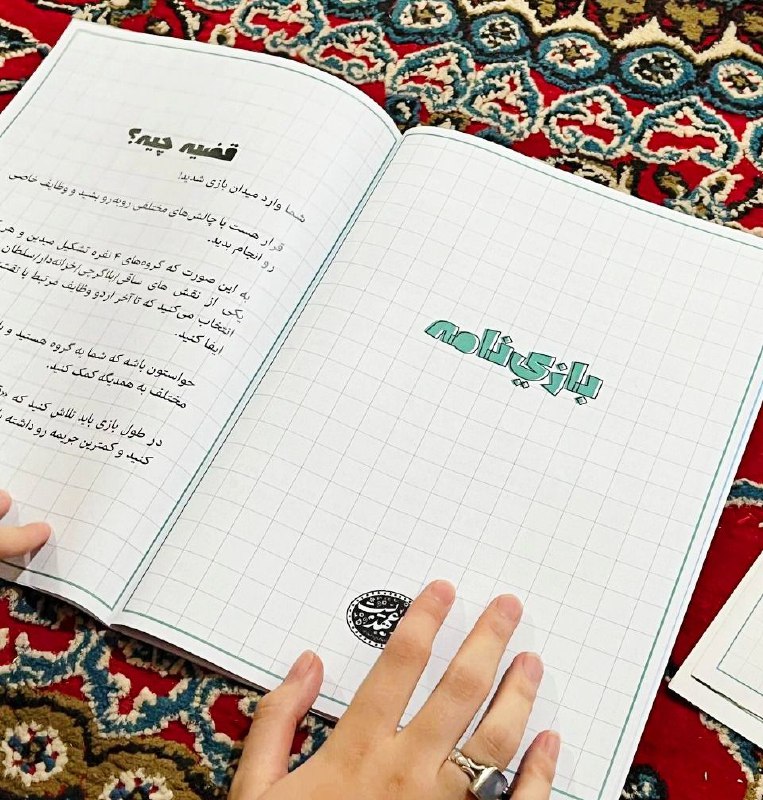 بازی‌نامه
عهدیت
قضیه چیه؟
شما وارد میدان بازی شدید!
قرار هست با چالش‌های مختلفی روبه‌رو بشید و وظایف خاصی
رو انجام بدید.
به این صورت که گروه‌های ۴ نفره تشکیل میدین و هر
یکی از نقش های ساقی/بلاگرجی/خزانه‌دار/سلطان
انتخاب می‌کنید که تا آخر اردو وظایف مرتبط با
ایفا کنید.
حواستون باشه که شما یه گروه هستید و
مختلف به همدیگه کمک کنید.
در طول بازی باید تلاش کنید که
کنید و کمترین جریمه رو داشته